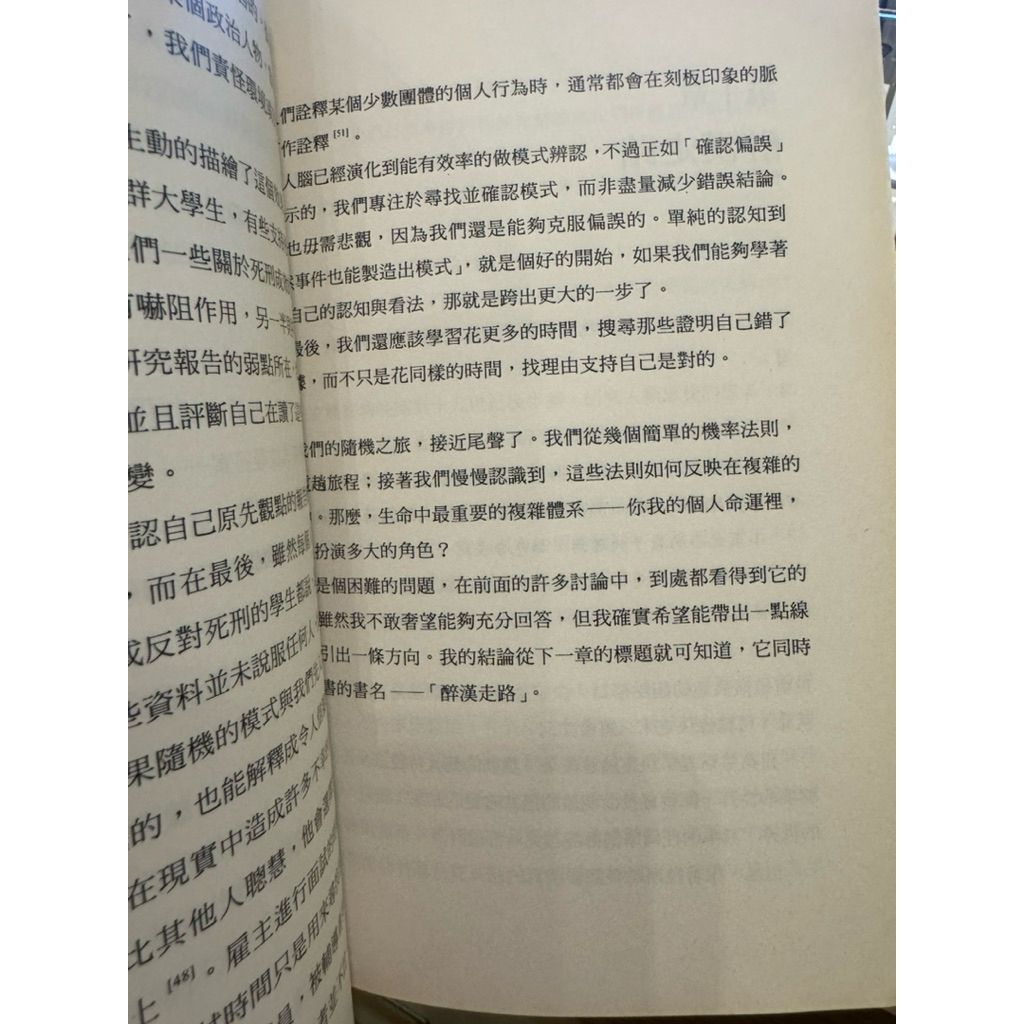 個政治人物，
，我們責怪環境
生動的描繪了這個
群大學生，有些支持
們一些關於死刑
嚇阻作用，另一半
研究報告的弱點所在，
並且評斷自己在讀了
變。
認自己原先觀點的
，而在最後，雖然每
或反對死刑的學生都
些資料並未說服任何人，
果隨機的模式與我們
的，也能解釋成令人
在現實中造成許多不
比其他人聰慧，他會
上[48]。雇主進行面試的
試時間只是用來
，被輔導
者並不
們詮釋某個少數團體的個人行為時，通常都會在刻板印象的脈
作詮釋[51]。
人腦已經演化到能有效率的做模式辨認，不過正如「確認偏誤」
示的，我們專注於尋找並確認模式，而非盡量減少錯誤結論。
也毋需悲觀，因為我們還是能夠克服偏誤的。單純的認知到
事件也能製造出模式」，就是個好的開始，如果我們能夠學著
自己的認知與看法，那就是跨出更大的一步了。
最後，我們還應該學習花更多的時間，搜尋那些證明自己錯了
，而不只是花同樣的時間，找理由支持自己是對的。
我們的隨機之旅，接近尾聲了。我們從幾個簡單的機率法則，
趟旅程；接著我們慢慢認識到，這些法則如何反映在複雜的
。那麼，生命中最重要的複雜體系——你我的個人命運裡，
扮演多大的角色？
是個困難的問題，在前面的許多討論中，到處都看得到它的
雖然我不敢奢望能夠充分回答，但我確實希望能帶出一點線
引出一條方向。我的結論從下一章的標題就可知道，它同時
書的書名——「醉漢走路」。